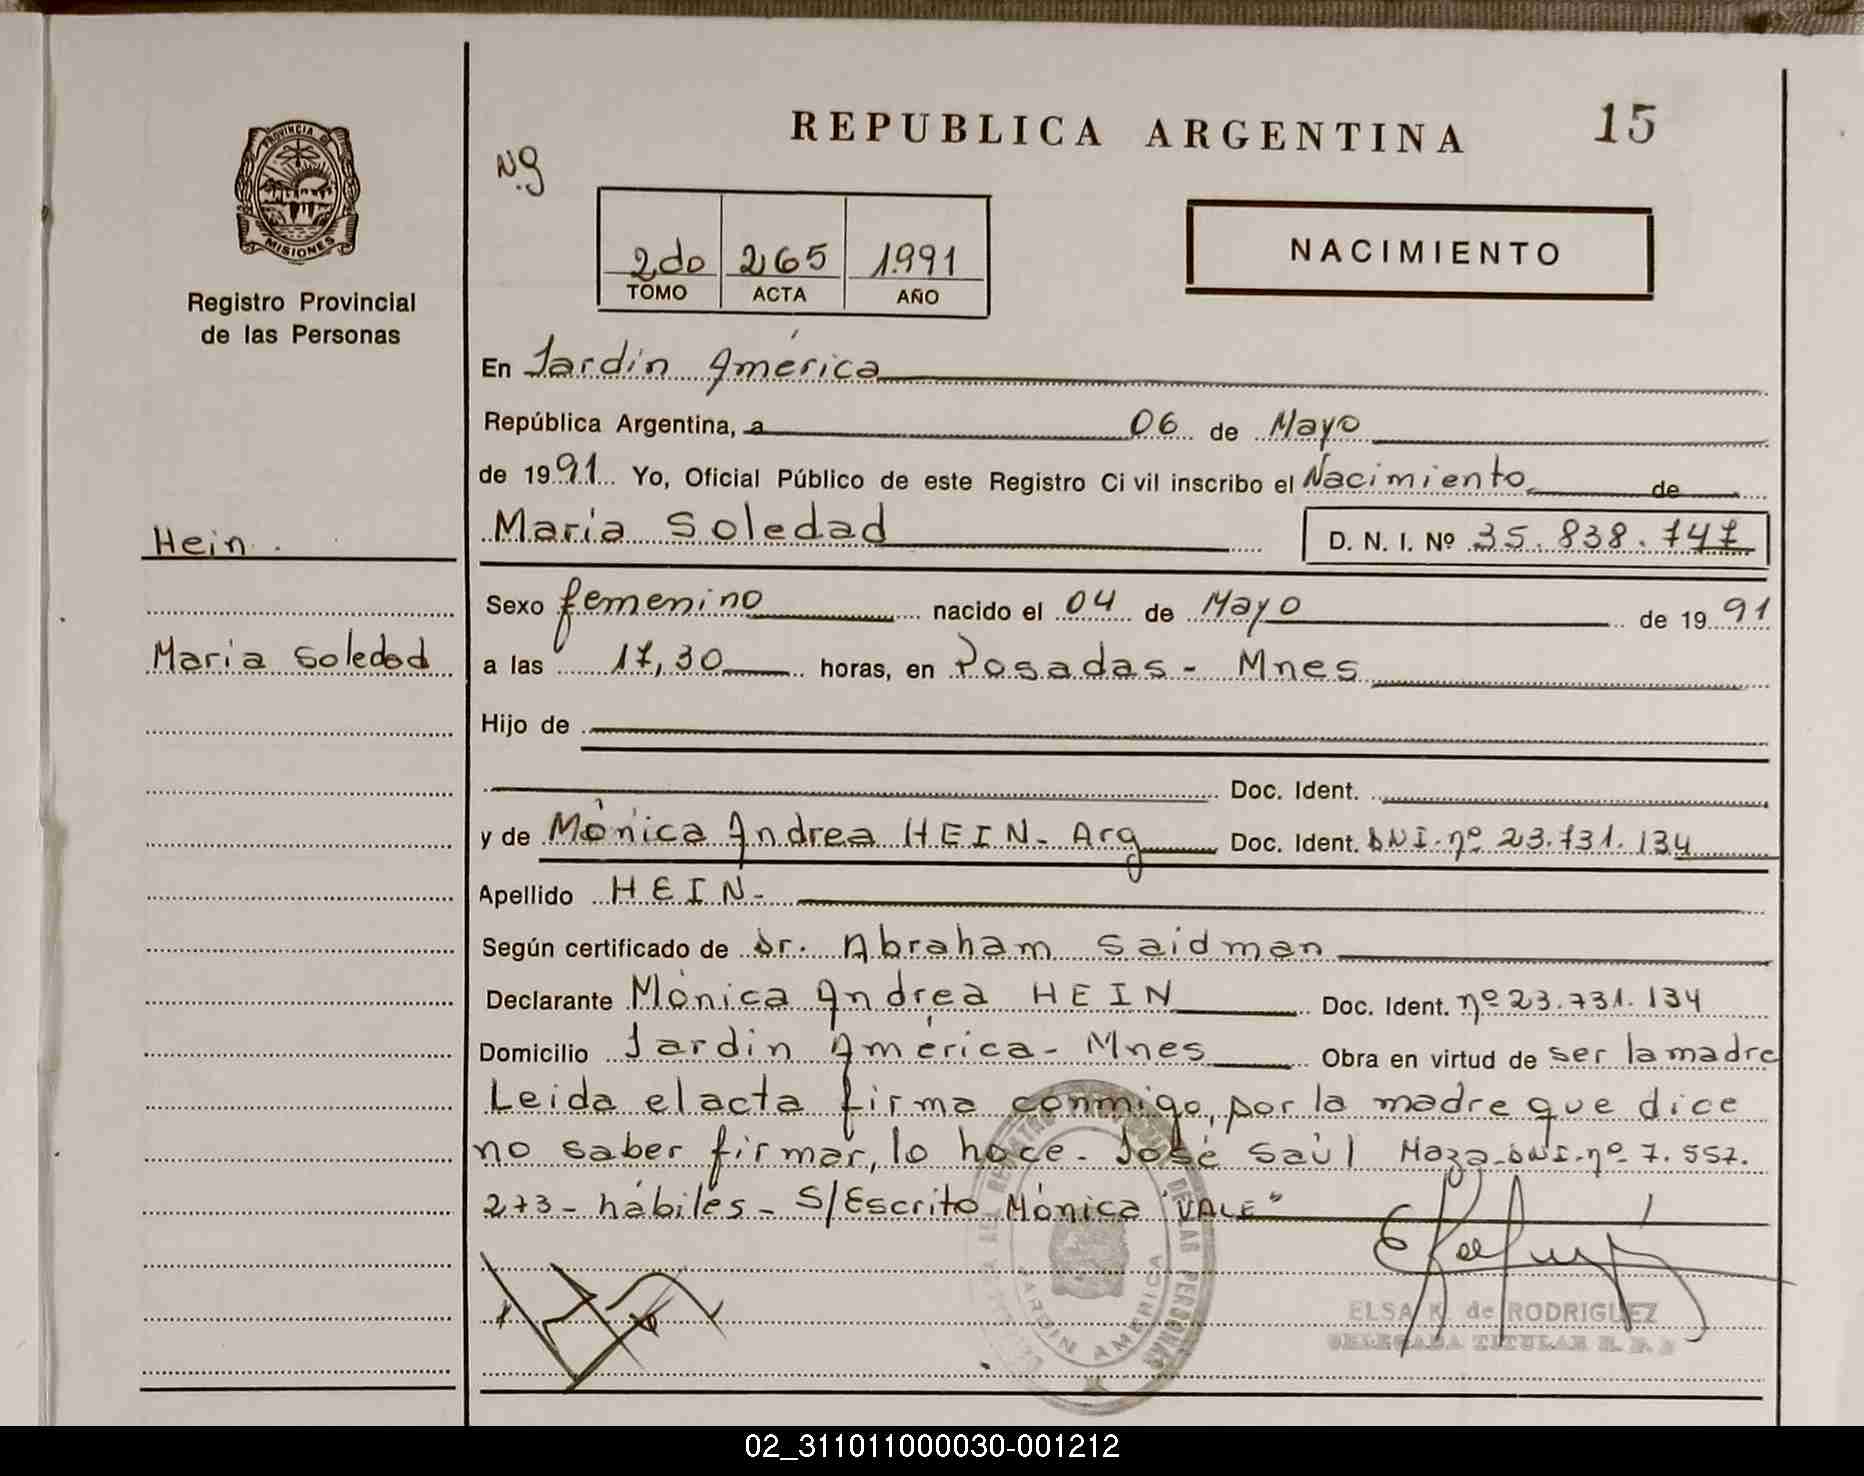 REPUBLICA ARGENTINA
15
PROVINCIA DE
MISIONES
Registro Provincial
de las Personas
N.g
2do 265 1.991
TOMO ACTA AÑO
NACIMIENTO
En Jardín América
República Argentina, a 06 de Mayo
de 1991. Yo, Oficial Público de este Registro Civil inscribo el Nacimiento de
Hein.
María Soledad D. N. I. Nº 35.838.747
Sexo femenino nacido el 04 de Mayo de 1991
María Soledad
a las 17,30 horas, en Posadas - Mnes
Hijo de
Doc. Ident.
y de Mónica Andrea HEIN - Arg Doc. Ident. DNI. nº 23.731.134
Apellido HEIN-
Según certificado de Dr. Abraham Saidman
Declarante Mónica Andrea HEIN Doc. Ident. nº 23.731.134
Domicilio Jardín América - Mnes Obra en virtud de ser la madre
Leida el acta firma conmigo, por la madre que dice
no saber firmar, lo hace - José Saúl Maza - DNI - nº 7.557.
273 - hábiles - S/Escrito Mónica "VALE"
JARDIN AMERICA
ELSA K. de RODRIGUEZ
DELEGADA TITULAR R. P. P
02_311011000030-001212